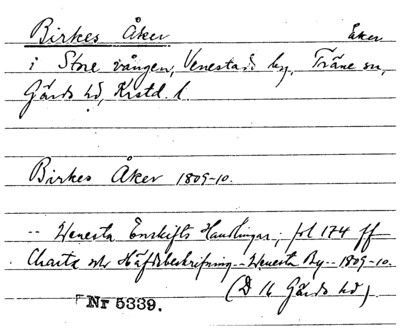 Birkes Åker Åker
i Store vången, Venestads by, Träne sn,
Gärds hd, Krstd. l.
Birkes Åker 1809-10.
-- Wenesta Enskifts Handlingar; fol 174 ff
Charta och Häfdebeskrifning -- Wenesta By -- 1809-10.
(D 16 Gärds hd)
Nr 5339.